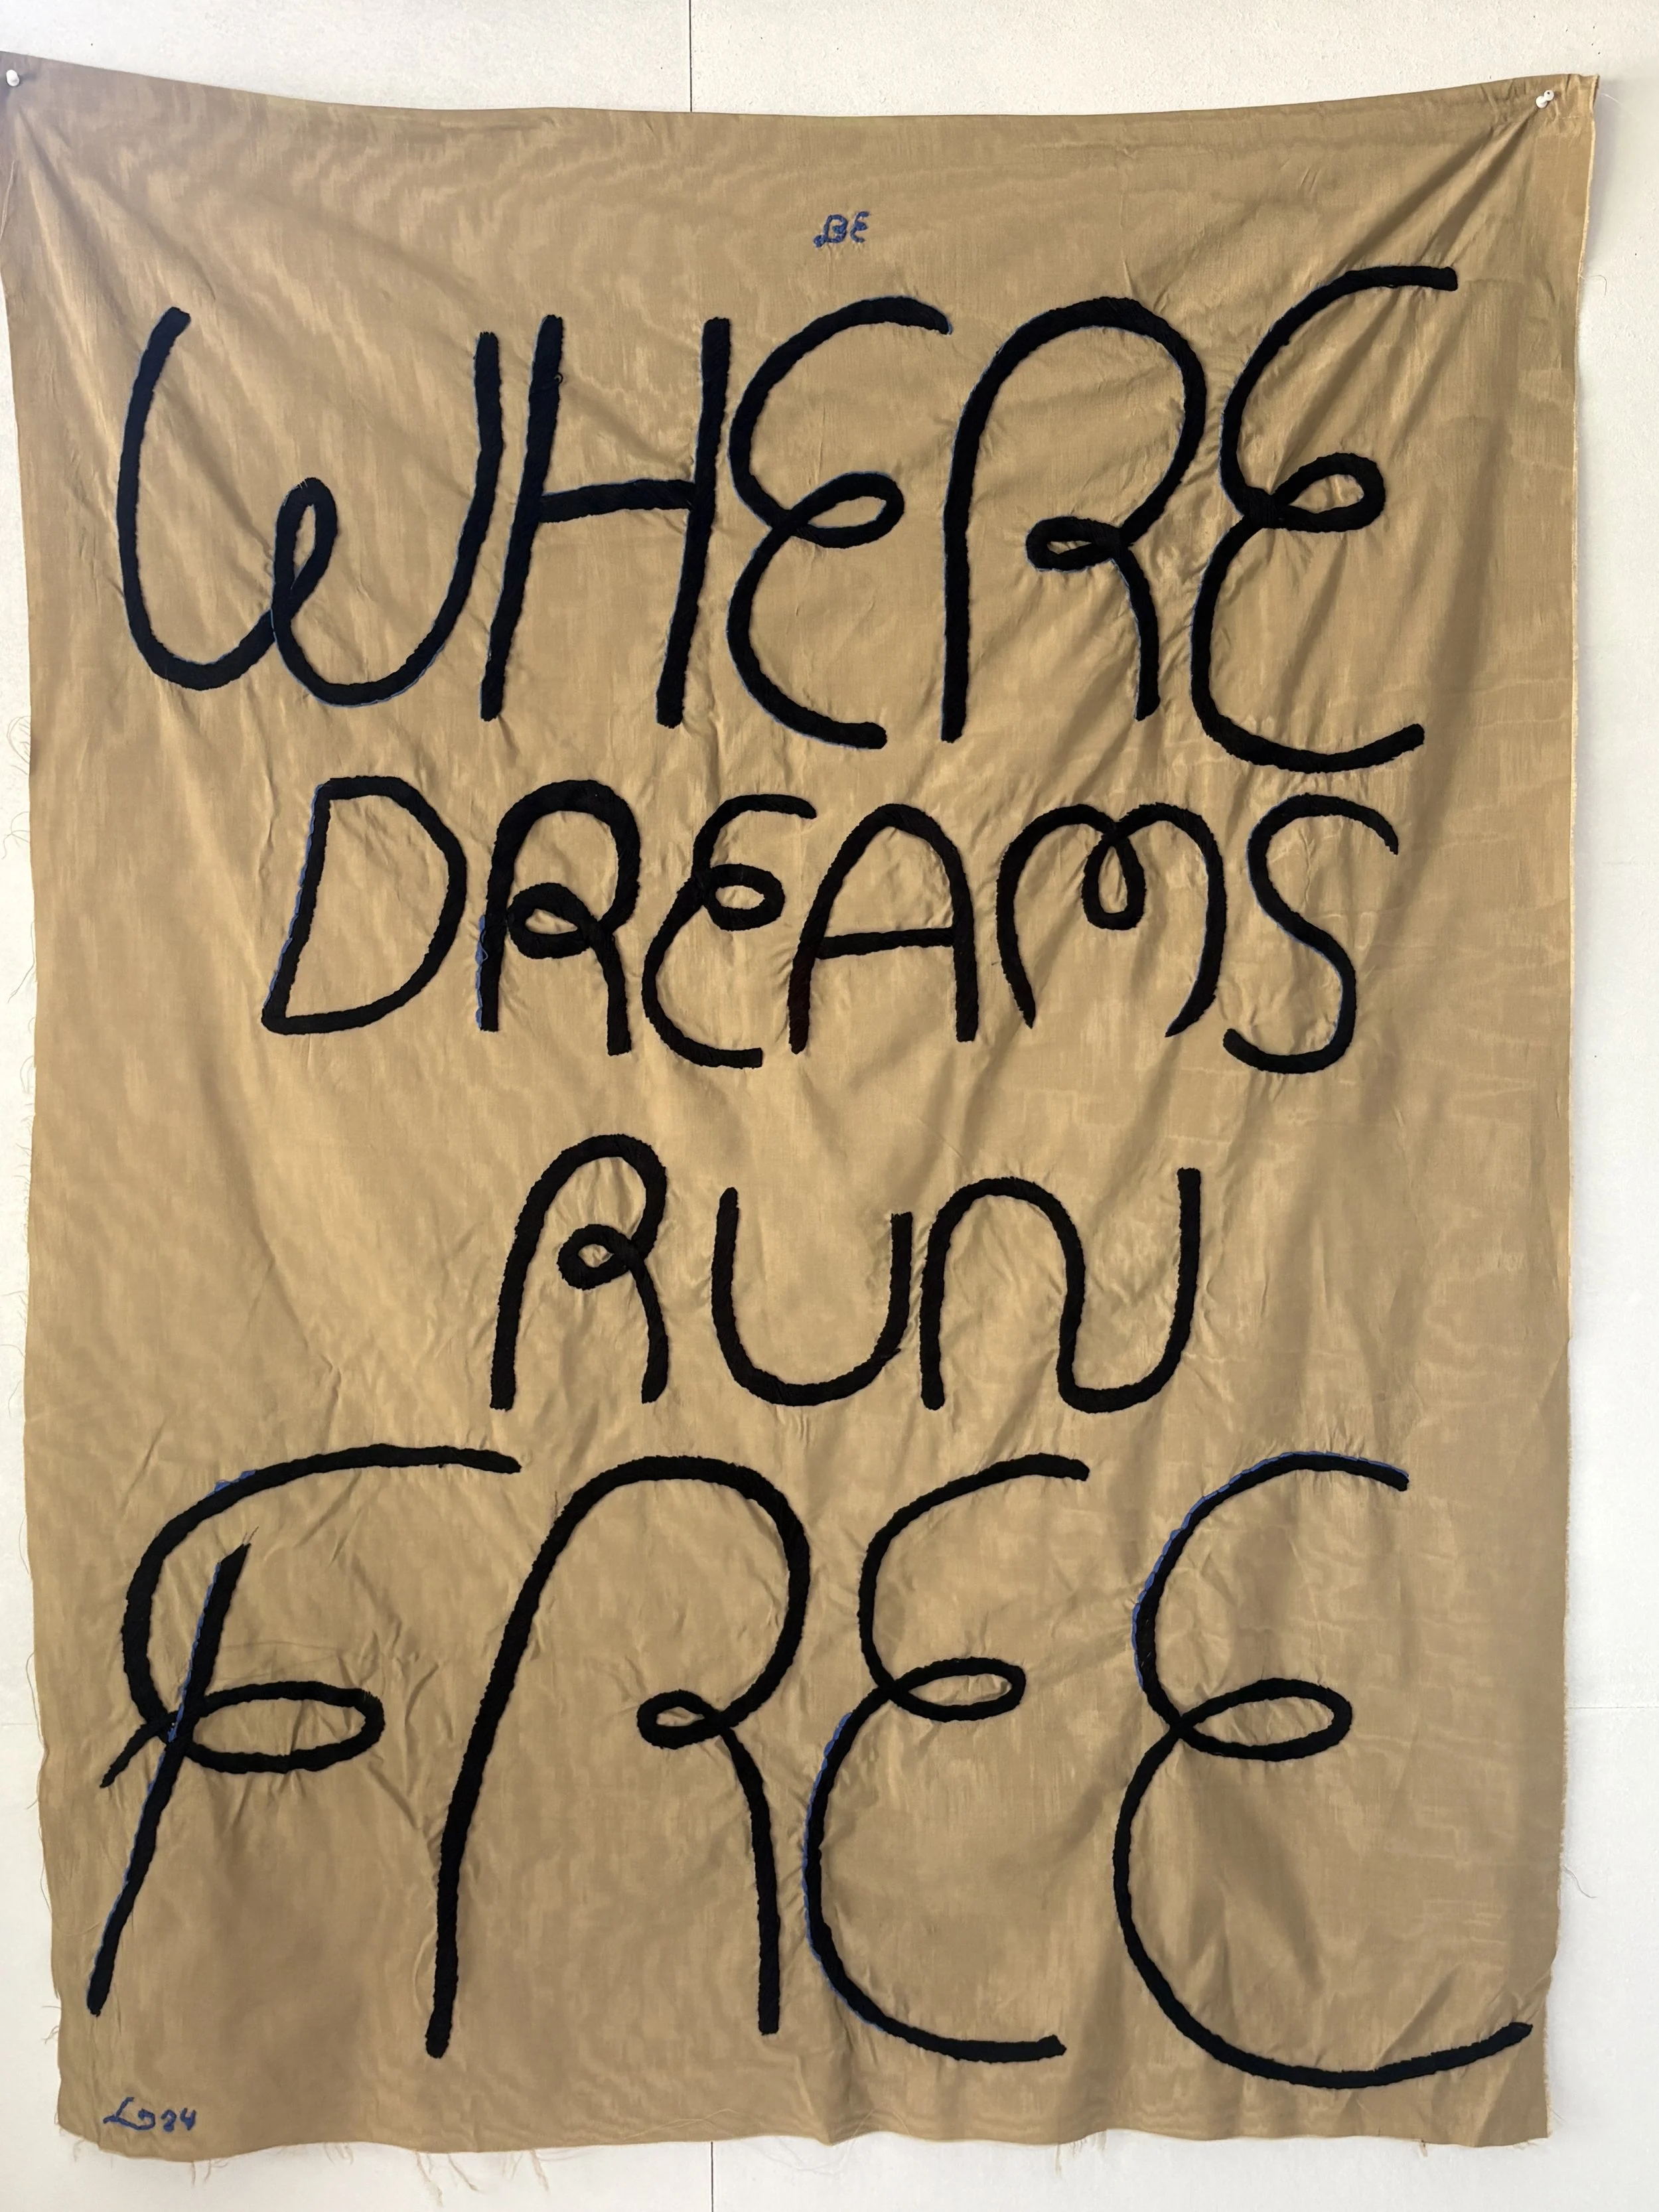 BE
WHERE
DREAMS
RUN
FREE
LD24